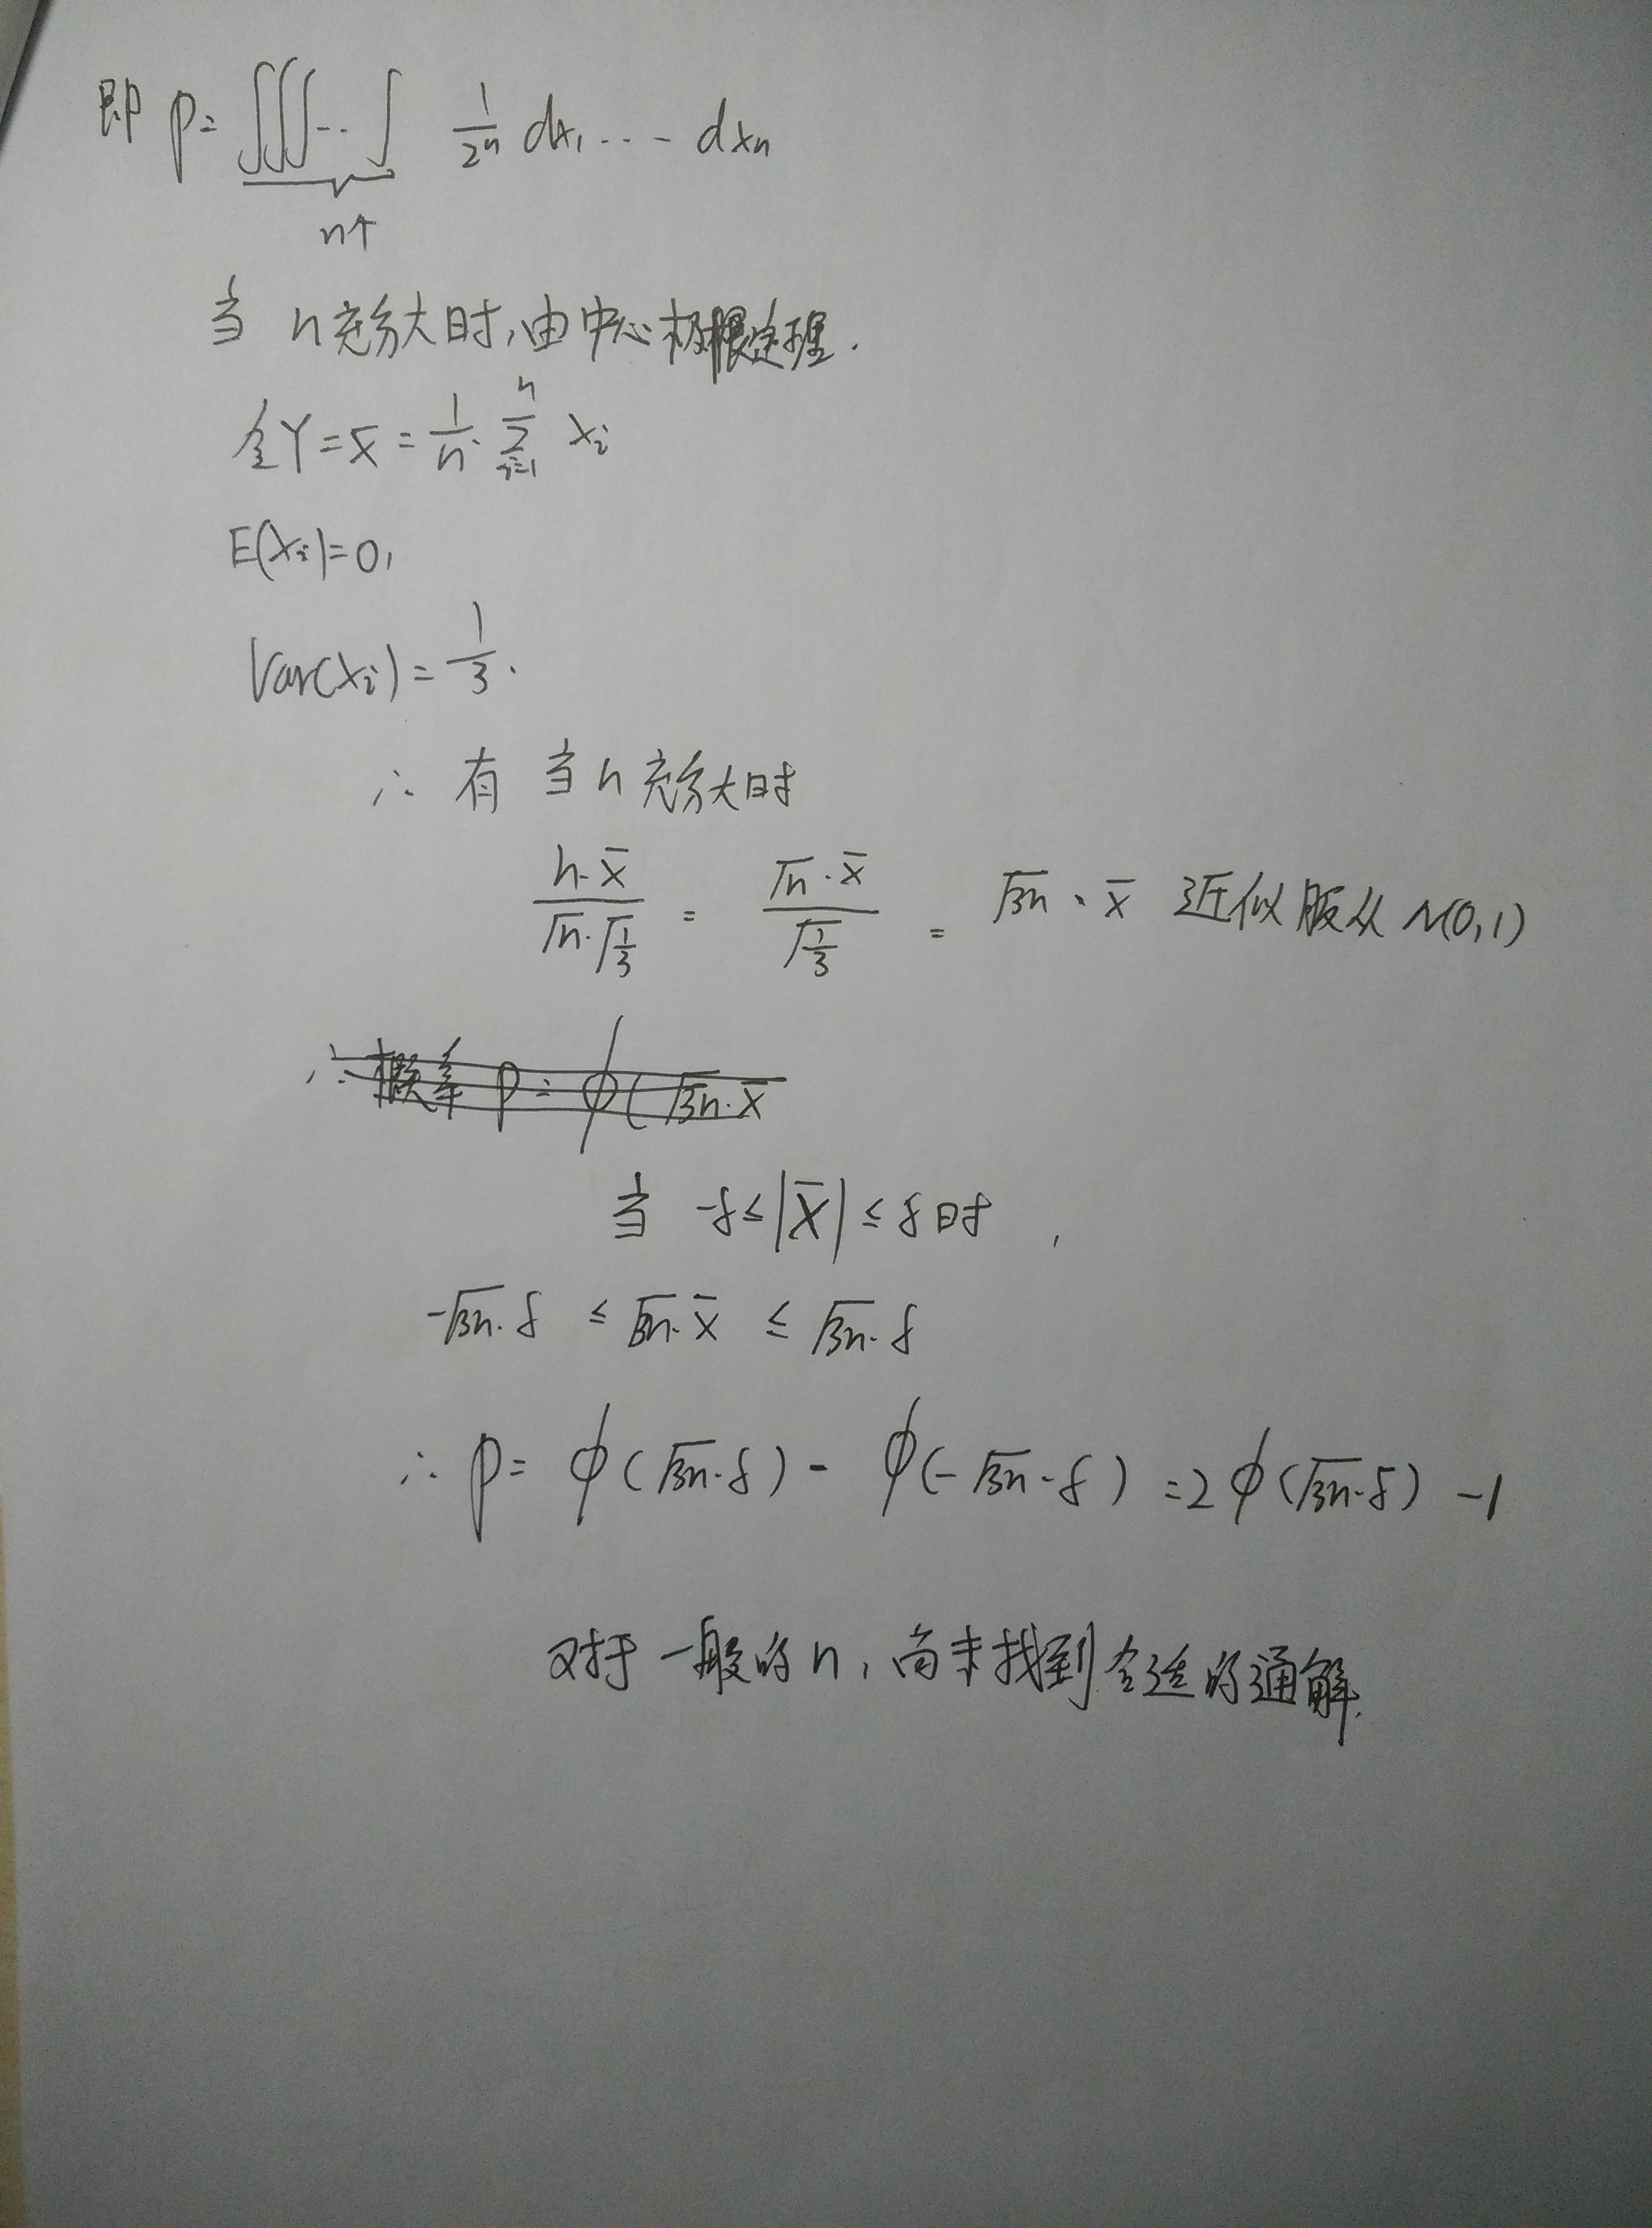 即 P= ∫∫∫···∫ 1/2ⁿ dx₁ ···· dxₙ
n个
当 n充分大时,由中心极限定理.
令Y=x̄=1/n·∑ᵢ₌₁ⁿ xᵢ
E(xᵢ)=0,
Var(xᵢ)=1/3.
∴ 有 当n充分大时
n·x̄/(√n·√(1/3)) = √n·x̄/√(1/3) = √3n·x̄ 近似服从 N(0,1)
∴概率 P= ϕ(√3n·x̄
当 -δ≤|x̄|≤δ时,
-√3n·δ ≤ √3n·x̄ ≤ √3n·δ
∴ P= ϕ(√3n·δ) - ϕ(-√3n·δ) =2ϕ(√3n·δ) -1
对于一般的n,尚未找到合适的通解.